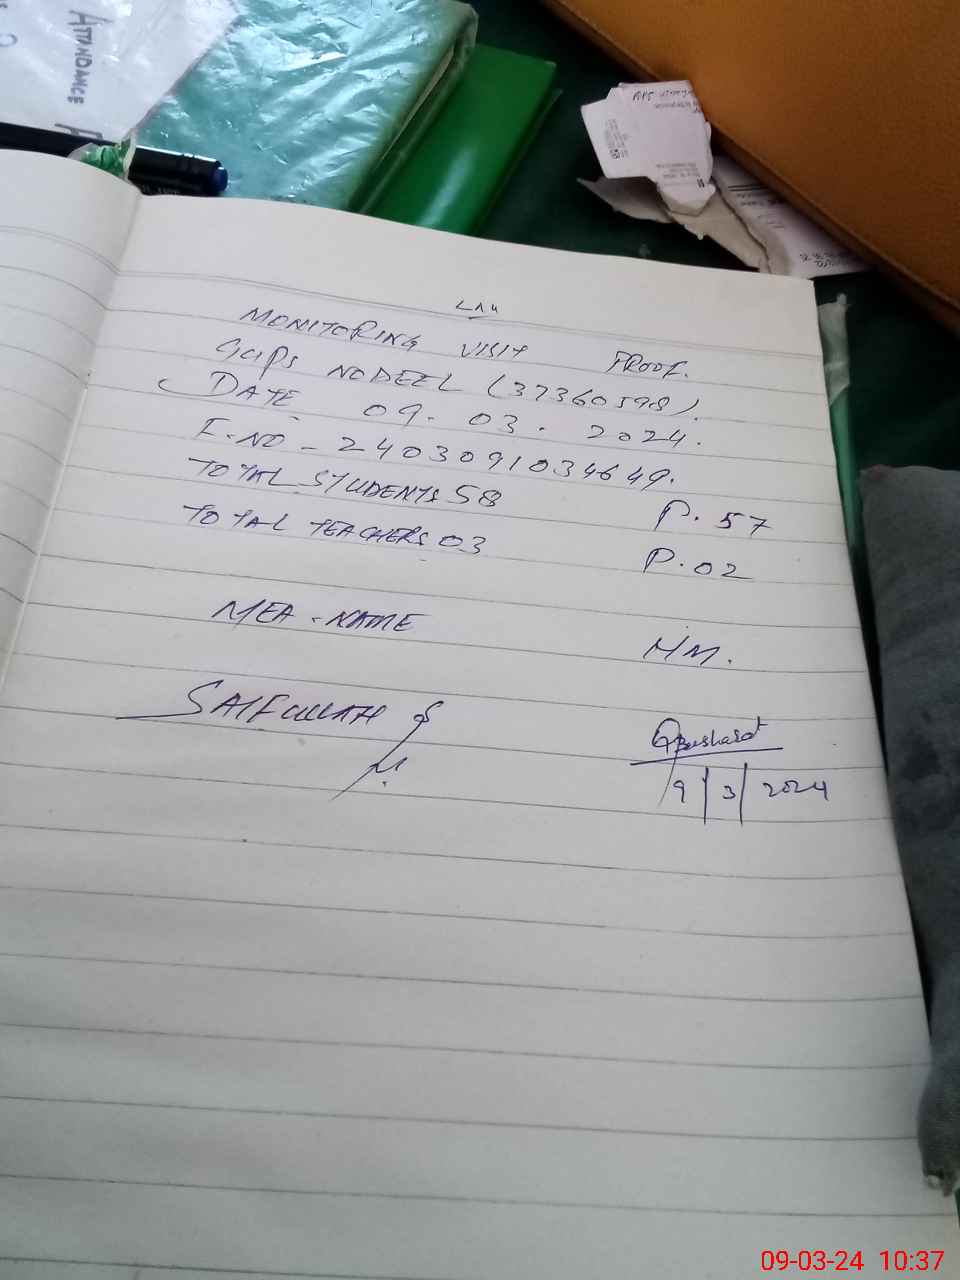 ATTANDANCE
MONITORING VISIT PROOF.
GGPS NODEEL (37360598).
DATE 09.03.2024.
F.NO - 2403091034649.
TOTAL STUDENTS 58 P.57
TOTAL TEACHERS 03 P.02
MEA-NAME HM.
SAIFULLAH
9/3/2024
09-03-24 10:37